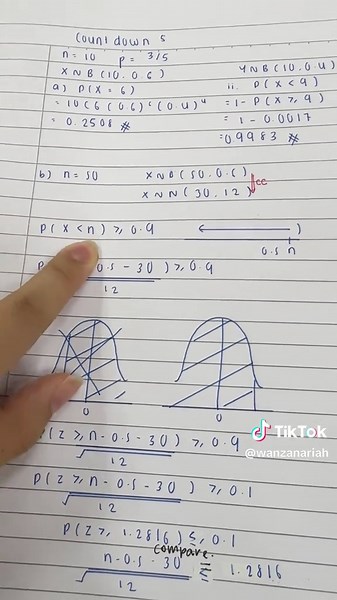 Countdown 5
n = 10 p = 3/5
X ~ B(10, 0.6)
a) P(X = 6)
= 10C6 (0.6)⁶ (0.4)⁴
= 0.2508 #
Y ~ B(10, 0.4)
ii. P(X < 9)
= 1 - P(X ≥ 9)
= 1 - 0.0017
= 0.9983 #
b) n = 50 X ~ B(50, 0.6)
cc
X ~ N(30, 12)
P(X < n) ≥ 0.9
0.5 n
0.5 - 30) ≥ 0.9
12
0 0
P(Z ≥ n - 0.5 - 30) ≥ 0.9
√12
TikTok
@wanzanariah
P(Z ≥ n - 0.5 - 30) ≥ 0.1
√12
P(Z ≥ 1.2816) ≤ 0.1
compare
n - 0.5 - 30 1.2816
√12